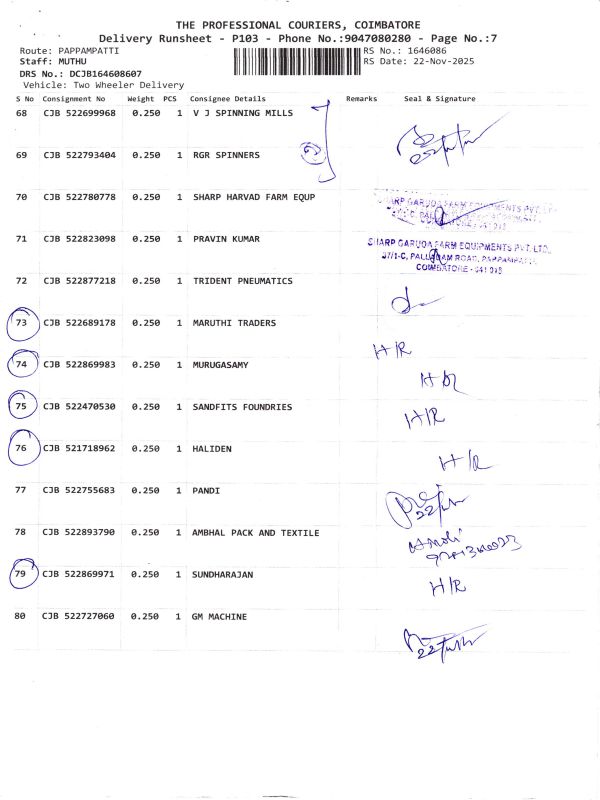 THE PROFESSIONAL COURIERS, COIMBATORE
Delivery Runsheet - P103 - Phone No.:9047080280 - Page No.:7
Route: PAPPAMPATTI RS No.: 1646086
Staff: MUTHU RS Date: 22-Nov-2025
DRS No.: DCJB164608607
Vehicle: Two Wheeler Delivery
S No Consignment No Weight PCS Consignee Details Remarks Seal & Signature
68 CJB 522699968 0.250 1 V J SPINNING MILLS
69 CJB 522793404 0.250 1 RGR SPINNERS
70 CJB 522780778 0.250 1 SHARP HARVAD FARM EQUP
SHARP GARUDA FARM EQUIPMENTS PVT. LTD.
71 CJB 522823098 0.250 1 PRAVIN KUMAR
SHARP GARUDA FARM EQUIPMENTS PVT. LTD.
37/1-C, PALLADAM ROAD, PAPPAMPATTI,
COIMBATORE - 641 016
72 CJB 522877218 0.250 1 TRIDENT PNEUMATICS
73 CJB 522689178 0.250 1 MARUTHI TRADERS
H/R
74 CJB 522869983 0.250 1 MURUGASAMY
H/R
75 CJB 522470530 0.250 1 SANDFITS FOUNDRIES
H/R
76 CJB 521718962 0.250 1 HALIDEN
H/R
77 CJB 522755683 0.250 1 PANDI
78 CJB 522893790 0.250 1 AMBHAL PACK AND TEXTILE
79 CJB 522869971 0.250 1 SUNDHARAJAN
H/R
80 CJB 522727060 0.250 1 GM MACHINE